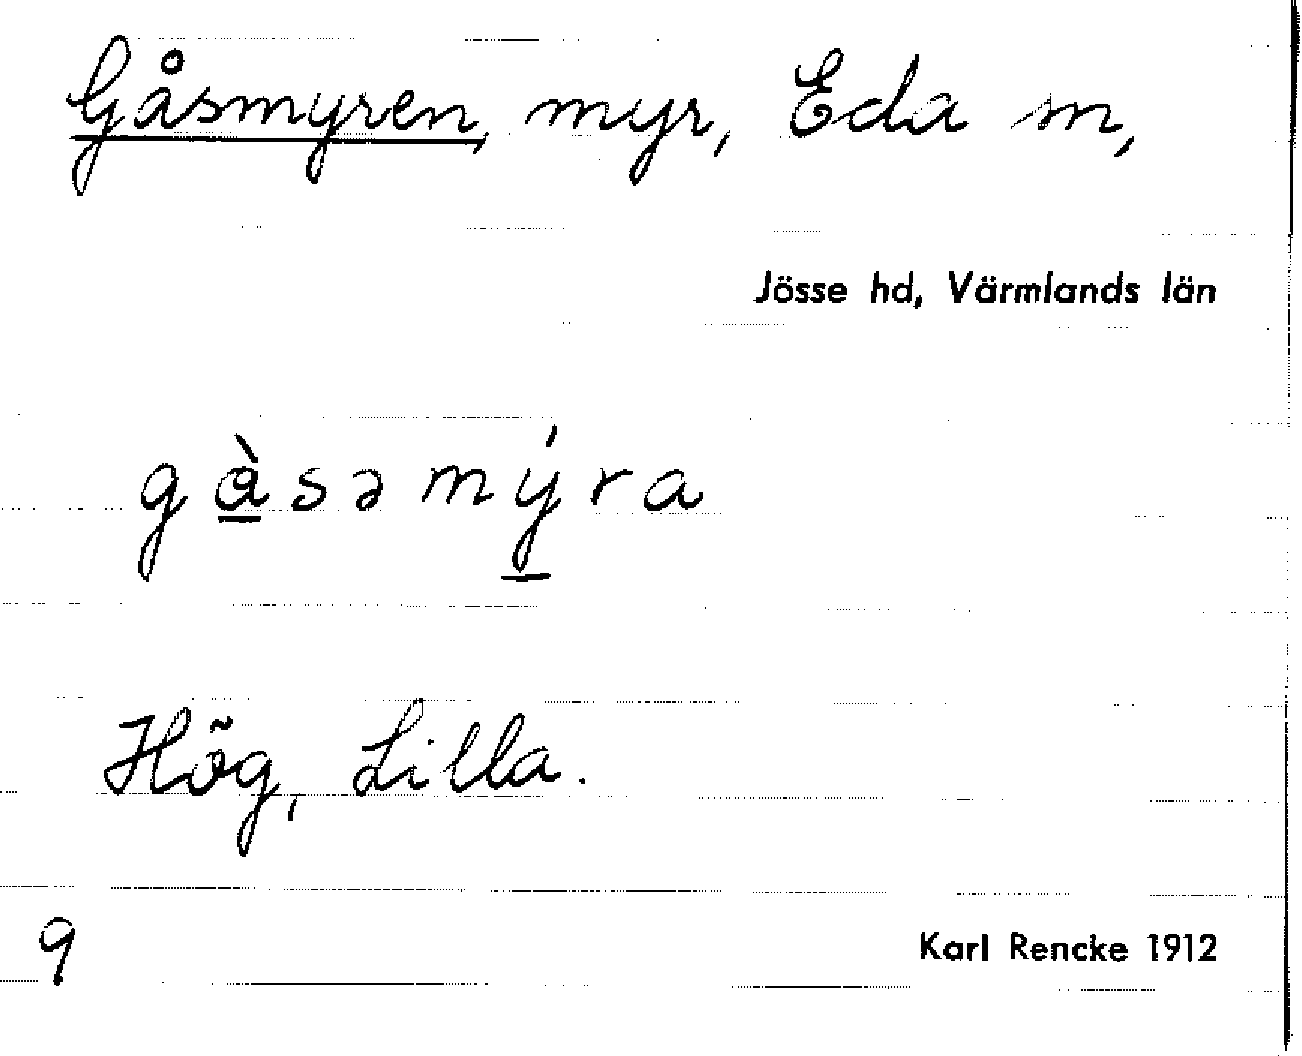 Gåsmyren, myr, Eda sn,
Jösse hd, Värmlands län
gàsəmýra
Hög, Lilla.
9
Karl Rencke 1912